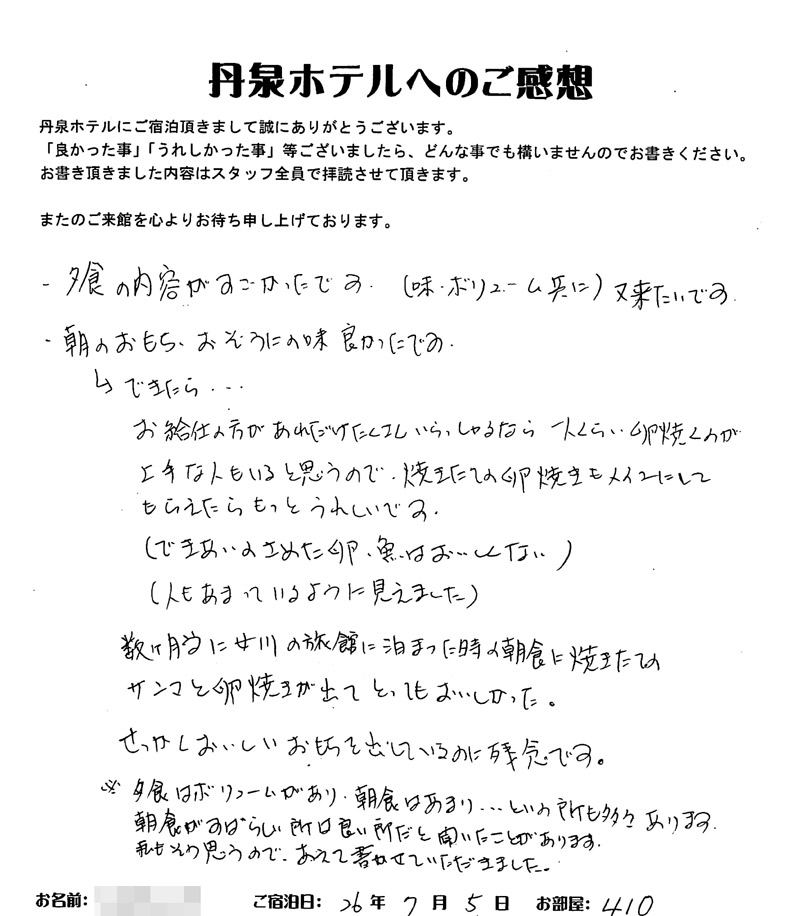 丹泉ホテルへのご感想
丹泉ホテルにご宿泊頂きまして誠にありがとうございます。
「良かった事」「うれしかった事」等ございましたら、どんな事でも構いませんのでお書きください。
お書き頂きました内容はスタッフ全員で拝読させて頂きます。
またのご来館を心よりお待ち申し上げております。
・夕食の内容がすごかったです。(味・ボリューム共に)又来たいです。
・朝のおもち、おぞうにの味良かったです。
↳できたら・・・
お給仕の方があれだけたくさんいらっしゃるなら一人くらい卵焼くのが
上手な人もいると思うので、焼きたての卵焼きもメインにして
もらえたらもっとうれしいです。
(できあいのさめた卵、魚はおいしくない)
(人もあまっているように見えました)
数ヶ月前に女川の旅館に泊まった時の朝食に焼きたての
サンマと卵焼きが出てとってもおいしかった。
せっかくおいしいおもちを出しているのに残念です。
※夕食はボリュームがあり、朝食はあまり…という所も多々あります。
朝食がすばらしい所は良い所だと聞いたことがあります。
私もそう思うので、あえて書かせていただきました。
お名前: ご宿泊日: 26年 7月 5日 お部屋: 410